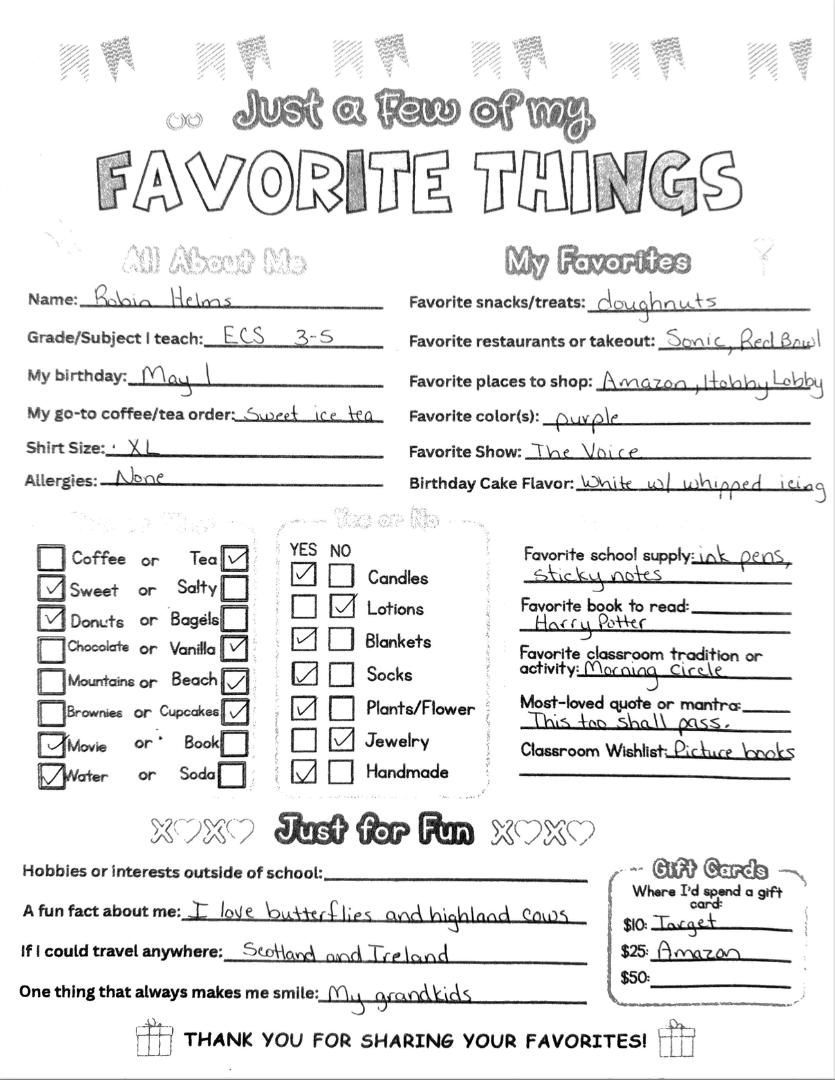 Just a Few of my
FAVORITE THINGS
All About Me
Name: Robin Helms
Grade/Subject I teach: ECS 3-5
My birthday: May 1
My go-to coffee/tea order: Sweet ice tea
Shirt Size: XL
Allergies: None
My Favorites
Favorite snacks/treats: doughnuts
Favorite restaurants or takeout: Sonic, Red Bowl
Favorite places to shop: Amazon, Hobby Lobby
Favorite color(s): purple
Favorite Show: The Voice
Birthday Cake Flavor: White w/ whipped icing
Coffee or Tea
Sweet or Salty
Donuts or Bagels
Chocolate or Vanilla
Mountains or Beach
Brownies or Cupcakes
Movie or Book
Water or Soda
Yes or No
YES NO
Candles
Lotions
Blankets
Socks
Plants/Flower
Jewelry
Handmade
Favorite school supply: ink pens,
sticky notes
Favorite book to read:
Harry Potter
Favorite classroom tradition or
activity: Morning circle
Most-loved quote or mantra:
This too shall pass.
Classroom Wishlist: Picture books
XOXO Just for Fun XOXO
Hobbies or interests outside of school:
A fun fact about me: I love butterflies and highland cows
If I could travel anywhere: Scotland and Ireland
One thing that always makes me smile: My grandkids
Gift Cards
Where I'd spend a gift
card:
$10: Target
$25: Amazon
$50:
THANK YOU FOR SHARING YOUR FAVORITES!